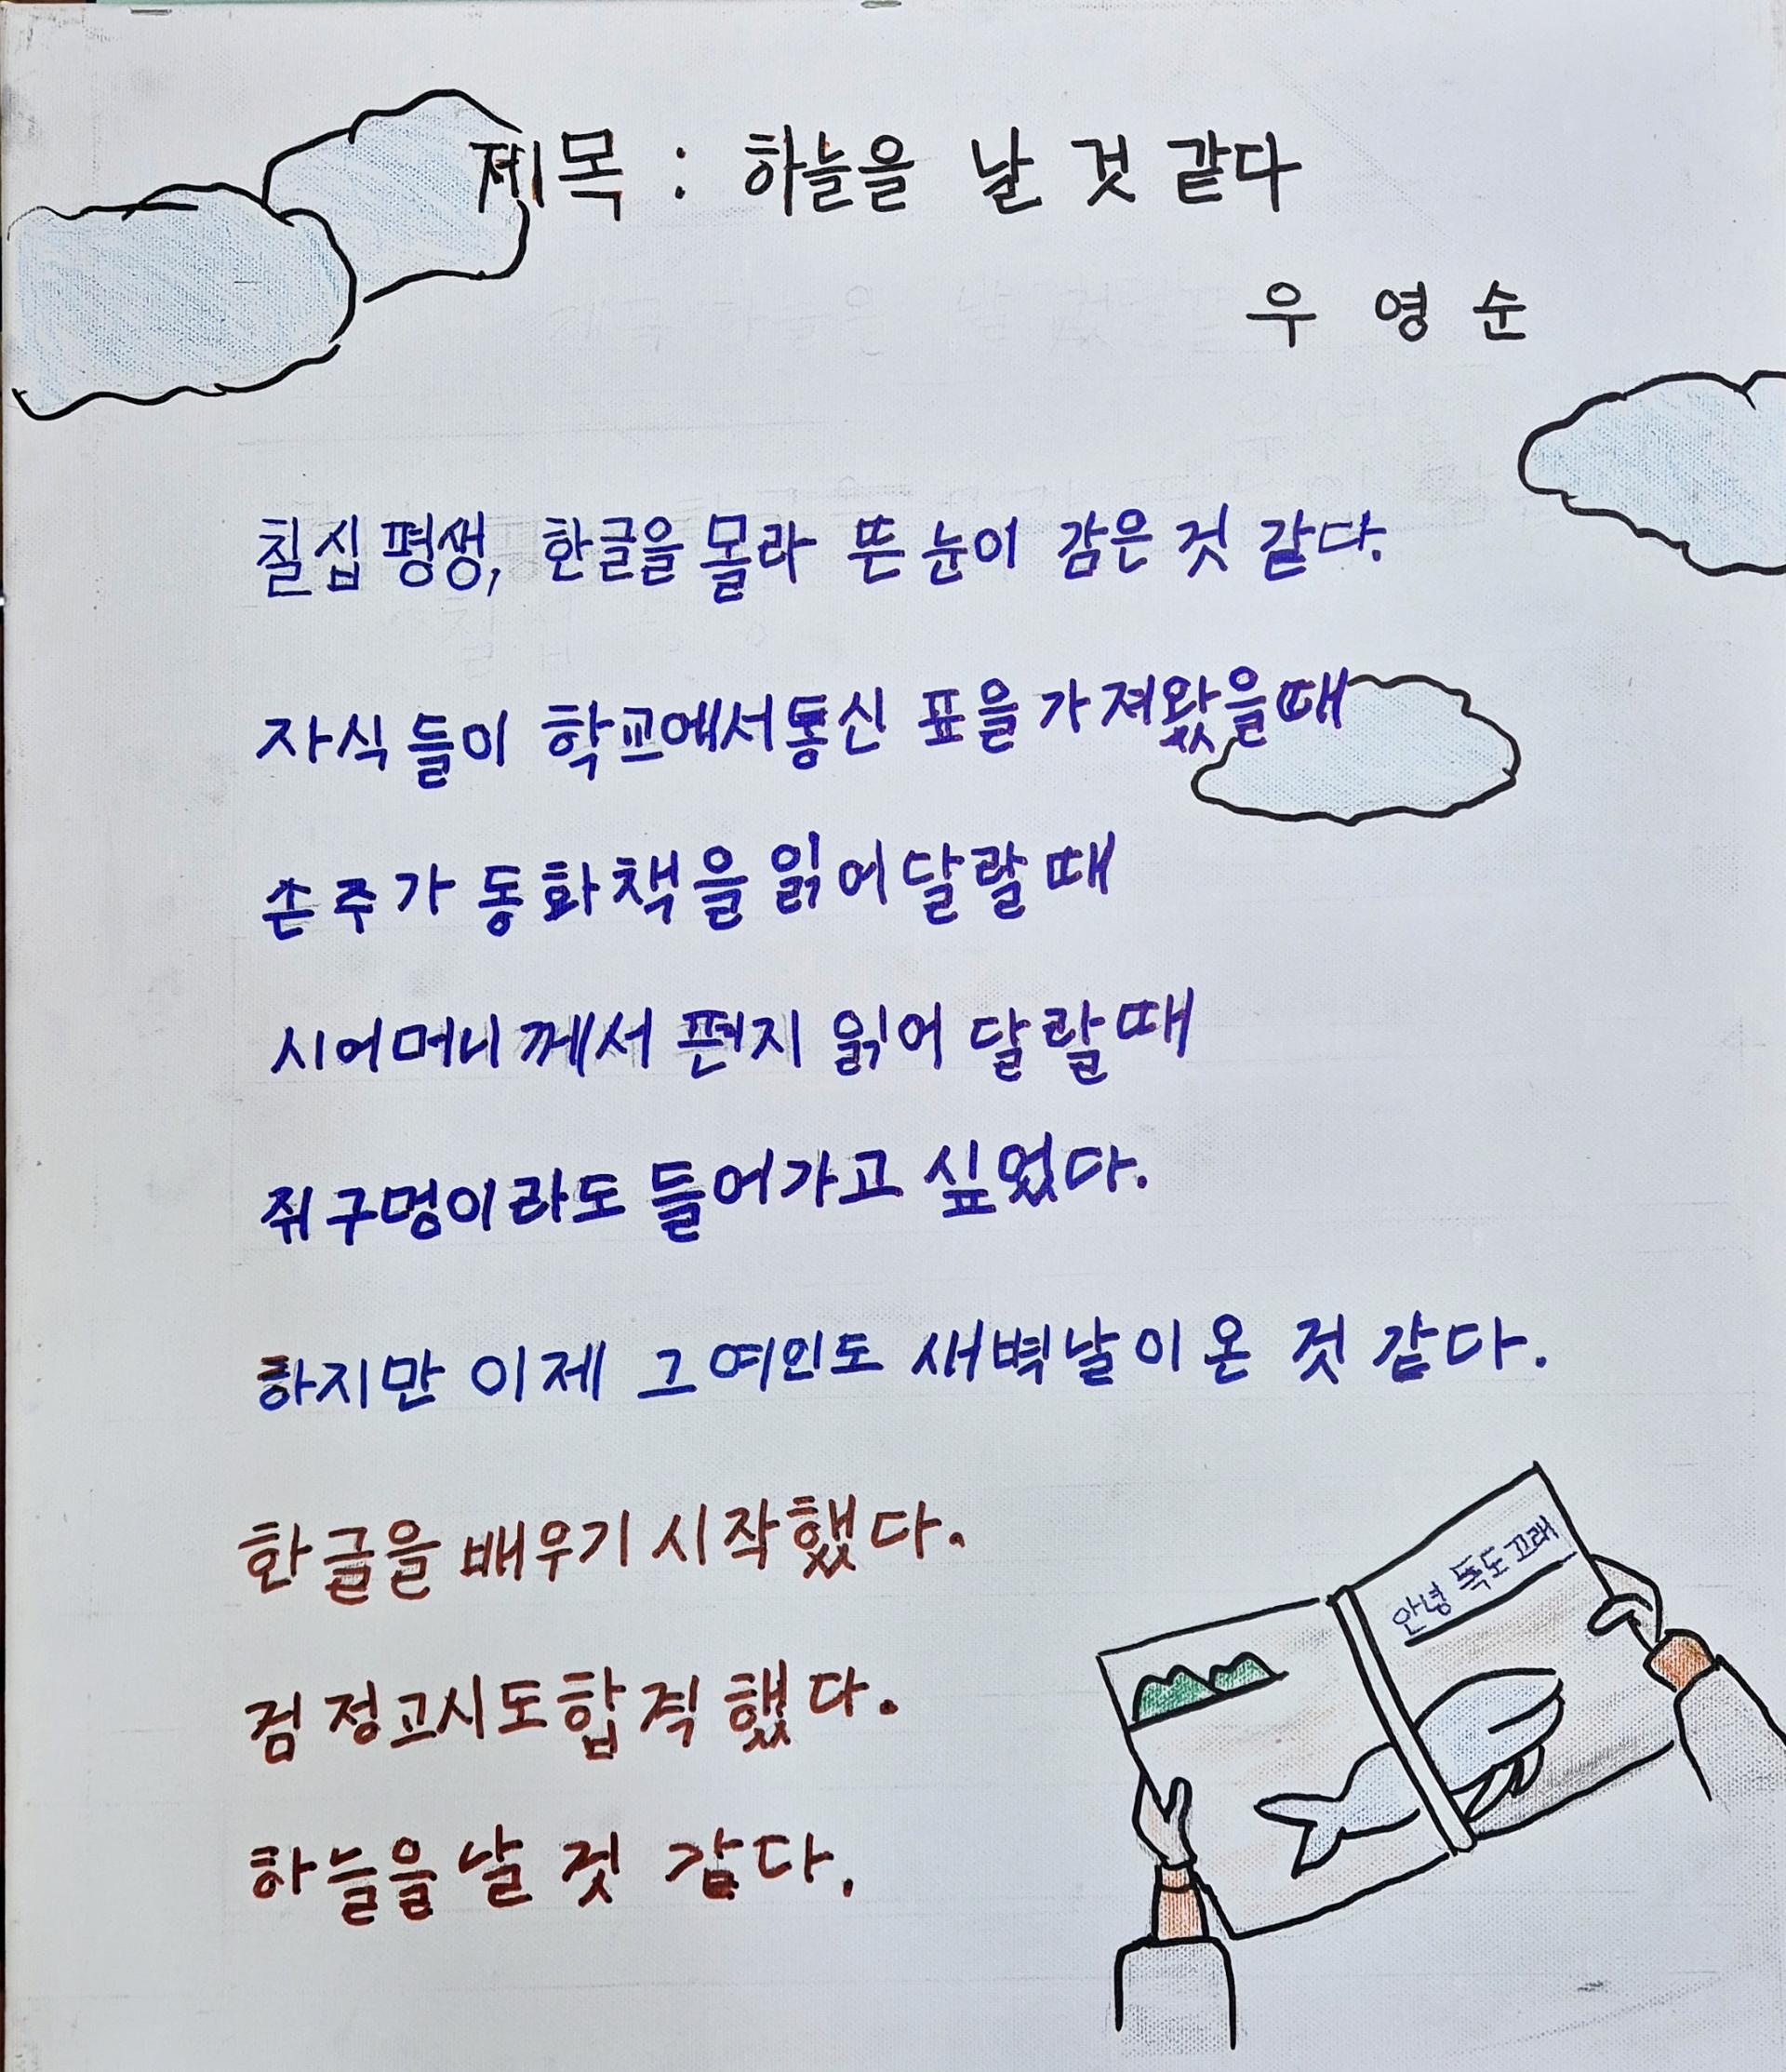 제목 : 하늘을 날 것 같다
우영순
칠십 평생, 한글을 몰라 뜬 눈이 감은 것 같다.
자식들이 학교에서 통신표을 가져왔을때
손주가 동화책을 읽어달랄 때
시어머니께서 편지 읽어 달랄때
쥐구멍이라도 들어가고 싶었다.
하지만 이제 그 여인도 새벽날이 온 것 같다.
한글을 배우기 시작했다.
검정고시도 합직했다.
하늘을 날 것 같다.
안녕 독도 고래